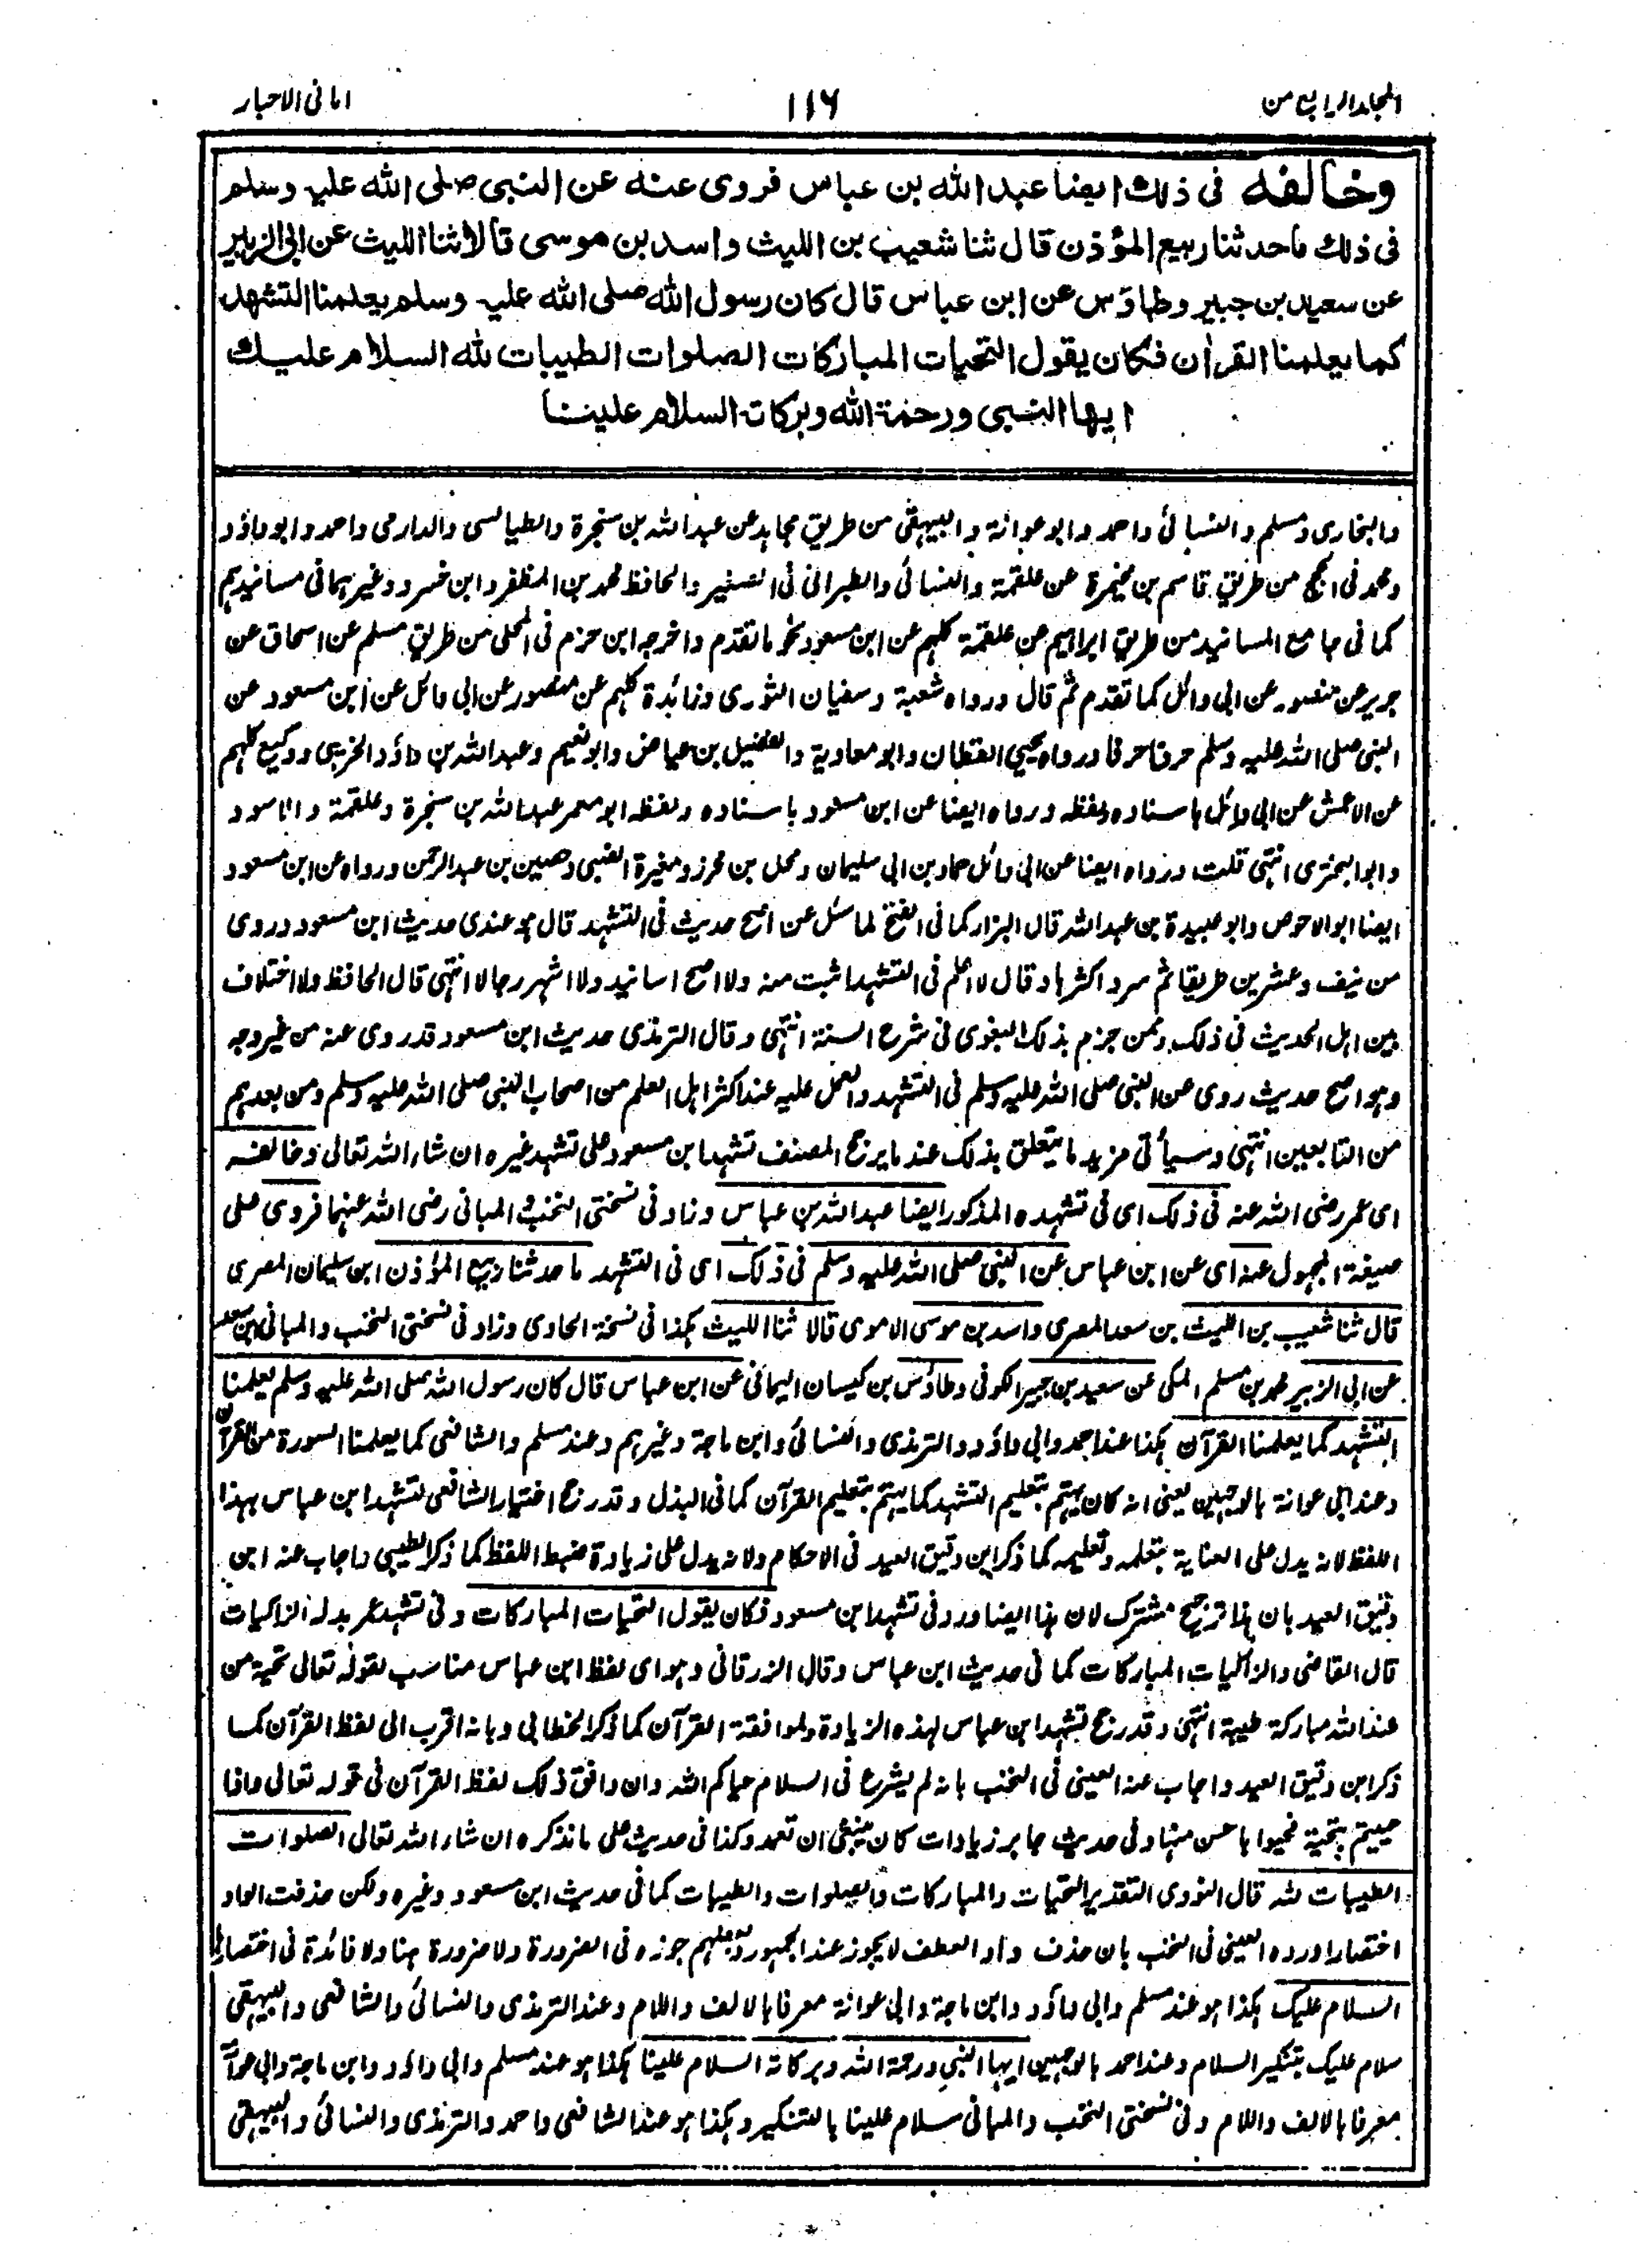 المجلد الرابع من
١١٦
امانى الاحبار
وخالفه فى ذلك ايضا عبد الله بن عباس فروى عنه عن النبى صلى الله عليه وسلم
فى ذلك ماحدثنا ربيع المؤذن قال ثنا شعيب بن الليث واسد بن موسى قالا ثنا الليث عن ابى الزبير
عن سعيد بن جبير وطاؤس عن ابن عباس قال كان رسول الله صلى الله عليه وسلم يعلمنا التشهد
كما يعلمنا القرأن فكان يقول التحيات المباركات الصلوات الطيبات لله السلام عليك
ايها النبى ورحمة الله وبركاته السلام علينا
والبخارى ومسلم والنسائى واحمد وابو عوانة والبيهقى من طريق مجاهد عن عبد الله بن سنجرة والطيالسى والدارمى واحمد وابو داؤد
ومحمد فى الحجج من طريق قاسم بن مخيمرة عن علقمة والنسائى والطبرانى فى الصغير والحافظ محمد بن المظفر وابن خسرو وغيرهما فى مسانيدهم
كما فى جامع المسانيد من طريق ابراهيم عن علقمة كلهم عن ابن مسعود نحو ما تقدم واخرجه ابن حزم فى المحلى من طريق مسلم عن اسحاق عن
جرير عن منصور عن ابى وائل كما تقدم ثم قال ورواه شعبة وسفيان الثورى وزائدة كلهم عن منصور عن ابى وائل عن ابن مسعود عن
النبى صلى الله عليه وسلم حرفا حرفا ورواه يحيى القطان وابو معاوية والفضيل بن عياض وابو نعيم وعبد الله بن داؤد الخريبى ووكيع كلهم
عن الاعمش عن ابى وائل باسناده ولفظه ورواه ايضا عن ابن مسعود باسناده ولفظه ابو معمر عبد الله بن سنجرة وعلقمة والاسود
وابو البخترى انتهى قلت ورواه ايضا عن ابى وائل حماد بن ابى سليمان ومحل بن محرز ومغيرة الضبى وحصين بن عبد الرحمن ورواه عن ابن مسعود
ايضا ابو الاحوص وابو عبيدة بن عبد الله قال البزار كما فى الفتح لما سئل عن اصح حديث فى التشهد قال هو عندى حديث ابن مسعود وروى
من نيف وعشرين طريقا ثم سرد اكثرها وقال لا اعلم فى التشهد اثبت منه ولا اصح اسانيد ولا اشهر رجالا انتهى قال الحافظ ولا اختلاف
بين اهل الحديث فى ذلك وممن جزم بذلك البغوى فى شرح السنة انتهى وقال الترمذى حديث ابن مسعود قد روى عنه من غير وجه
وهو اصح حديث روى عن النبى صلى الله عليه وسلم فى التشهد والعمل عليه عند اكثر اهل العلم من اصحاب النبى صلى الله عليه وسلم ومن بعدهم
من التابعين انتهى وسيأتى مزيد ما يتعلق بذلك عند ما يرجح المصنف تشهد ابن مسعود على تشهد غيره ان شاء الله تعالى وخالفه
اى عمر رضى الله عنه فى ذلك اى فى تشهده المذكور ايضا عبد الله بن عباس وزاد فى نسختى النخب والمبانى رضى الله عنهما فروى على
صيغة المجهول عنه اى عن ابن عباس عن النبى صلى الله عليه وسلم فى ذلك اى فى التشهد ما حدثنا ربيع المؤذن ابن سليمان المصرى
قال ثنا شعيب بن الليث بن سعد المصرى واسد بن موسى الاموى قالا ثنا الليث هكذا فى نسخة الحاوى وزاد فى نسختى النخب والمبانى ابن سعد
عن ابى الزبير محمد بن مسلم المكى عن سعيد بن جبير الكوفى وطاؤس بن كيسان اليمانى عن ابن عباس قال كان رسول الله صلى الله عليه وسلم يعلمنا
التشهد كما يعلمنا القرآن هكذا عند احمد وابى داؤد والترمذى والنسائى وابن ماجة وغيرهم وعند مسلم والشافعى كما يعلمنا السورة من القرآن
وعند ابى عوانة بالوجهين يعنى انه كان يهتم بتعليم التشهد كما يهتم بتعليم القرآن كما فى البذل وقد رجح اختيار الشافعى لتشهد ابن عباس بهذا
اللفظ لانه يدل على العناية بتعلمه وتعليمه كما ذكر ابن دقيق العيد فى الاحكام ولانه يدل على زيادة ضبط اللفظ كما ذكر الطيبى واجاب عنه ابن
دقيق العيد بان هذا ترجيح مشترك لان هذا ايضا ورد فى تشهد ابن مسعود فكان يقول التحيات المباركات وفى تشهد عمر بدله الزاكيات
قال القاضى والزاكيات المباركات كما فى حديث ابن عباس وقال الزرقانى وهو اى لفظ ابن عباس مناسب لقوله تعالى تحية من
عند الله مباركة طيبة انتهى وقد رجح تشهد ابن عباس لهذه الزيادة ولموافقة القرآن كما ذكر الخطابى وبانه اقرب الى لفظ القرآن كما
ذكر ابن دقيق العيد واجاب عنه العينى فى النخب بانه لم يشرع فى السلام حياكم الله وان وافق ذلك لفظ القرآن فى قوله تعالى واذا
حييتم بتحية فحيوا باحسن منها وفى حديث جابر زيادات كان ينبغى ان تعمد وكذا فى حديث على ما نذكره ان شاء الله تعالى الصلوات
الطيبات لله قال النووى التقدير التحيات والمباركات والصلوات والطيبات كما فى حديث ابن مسعود وغيره ولكن حذفت الواو
اختصارا ورده العينى فى النخب بان حذف واو العطف لا يجوز عند الجمهور وبعضهم جوزه فى الضرورة ولا ضرورة هنا ولا فائدة فى اختصارها
السلام عليك هكذا هو عند مسلم وابى داؤد وابن ماجة وابى عوانة معرفا بالالف واللام وعند الترمذى والنسائى والشافعى والبيهقى
سلام عليك بتنكير السلام وعند احمد بالوجهين ايها النبى ورحمة الله وبركاته السلام علينا هكذا هو عند مسلم وابى داؤد وابن ماجة وابى عوانة
معرفا بالالف واللام وفى نسختى النخب والمبانى سلام علينا بالتنكير وهكذا هو عند الشافعى واحمد والترمذى والنسائى والبيهقى